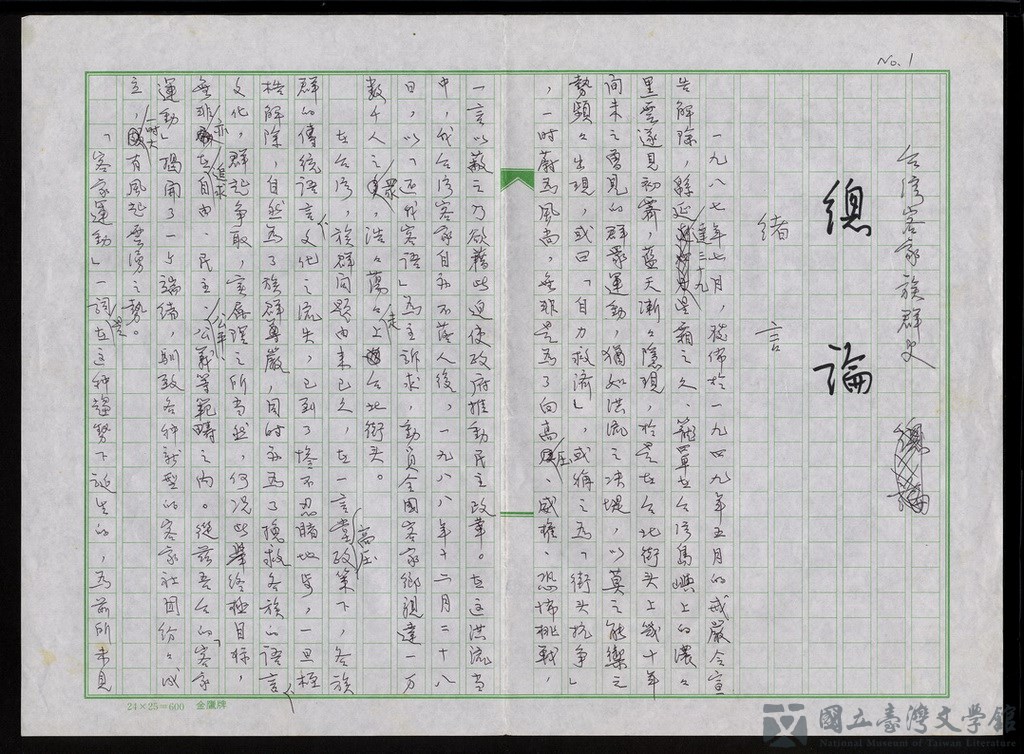 No. 1
台湾客家族群史
總論
緒言
一九八七年七月,頒佈於一九四九年五月的戒嚴令宣
告解除,緜延達三十九星霜之久、籠罩在台湾島嶼上的濃々
里雲遂見初霽,藍天漸々隱現,於是在台北街頭上幾十年
間未之曾見的群眾運動,猶如洪流之決堤,以莫之能禦之
勢頻々出現,或曰「自力救済」,或稱之為「街頭抗争」
,一時蔚為風尚,無非是為了向高压、威權、恐怖挑戰,
一言以蔽之乃欲藉此迫使政府推動民主改革。在這洪流当
中,我台湾客家自亦不落人後,一九八八年十二月二十八
日,以「还我客语」為主訴求,動員全國客家鄉親達一万
數千人之眾,浩々蕩々走上台北街头。
在台湾,族群问題由来已久,在一言堂高压政策下,各族
群的傳统語言文化之流失,已到了惨不忍睹地步,一旦桎
梏解除,自然為了族群尊嚴,同时亦為了挽救各族的语言
文化,群起争取,言屬理之所当然,何况此舉终極目标,
無非亦在追求自由、民主、公平公義等範疇之內。從茲吾台的「客家
運動」揭開了一占端绪,馴致各种新型的客家社团纷々成
立,一时大有風起雲湧之勢。
「客家運動」一詞是在这种趨势下诞生的,為前所未見
24×25=600 金鷹牌
國立臺灣文學館
National Museum of Taiwan Literature